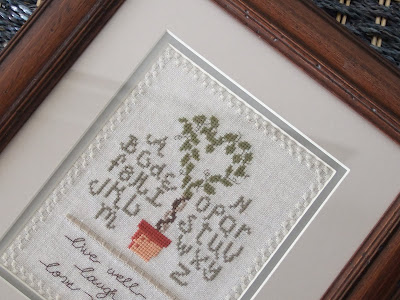 A
BCde
fGHI
JKL
M
N
OPQR
STUV
WXY
Z
live well
laugh
love